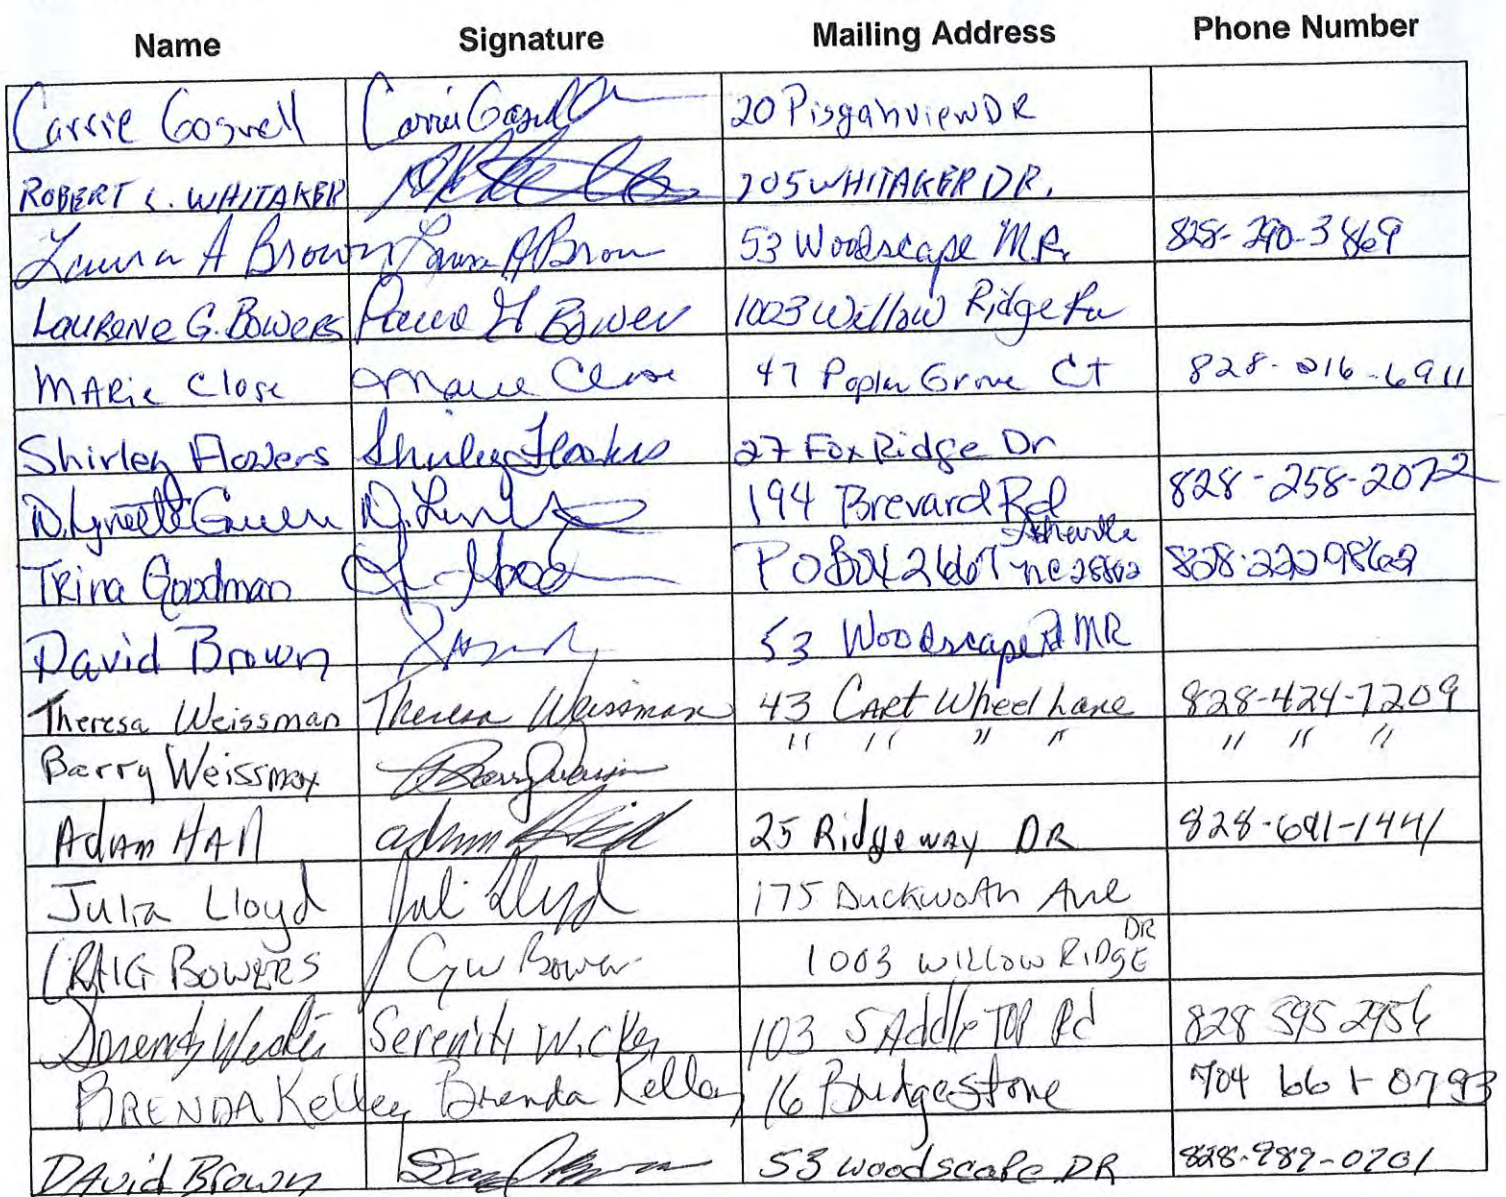 Name Signature Mailing Address Phone Number
Carrie Gosnell Carrie Gosnell 20 Pisgahview DR
ROBERT L. WHITAKER 205 WHITAKER DR.
Laura A Brown Laura A Brown 53 Woodscape M.R. 828-290-3869
LAURENE G. BOWERS 1003 Willow Ridge
MARie Close Marie Close 47 Poplar Grove CT 828-216-6911
Shirley Flowers Shirley Flowers 27 Fox Ridge Dr
D. Lynette Green 194 Brevard Rd 828-258-2072
Asheville
TRina Goodman PO BOX 2667 nc 28802 828-220 9862
David Brown 53 Woodscape Rd MR
Theresa Weissman Theresa Weissman 43 CART Wheel Lane 828-424-7209
Barry Weissman " " " " " " "
Adam HAll Adam Hall 25 Ridgeway DR 828-691-1441
Julia Lloyd Juli Lloyd 175 Duckworth Ave
DR
CRAIG BOWERS C W Bower 1003 WILLOW RIDGE
Serenity Wicker Serenity Wicker 103 SAddle TOP Rd 828 595 2956
BRENDA Kelley Brenda Kelley 16 Bridgestone 704 661-0793
DAvid Brown 53 woodscape DR 828-989-0201